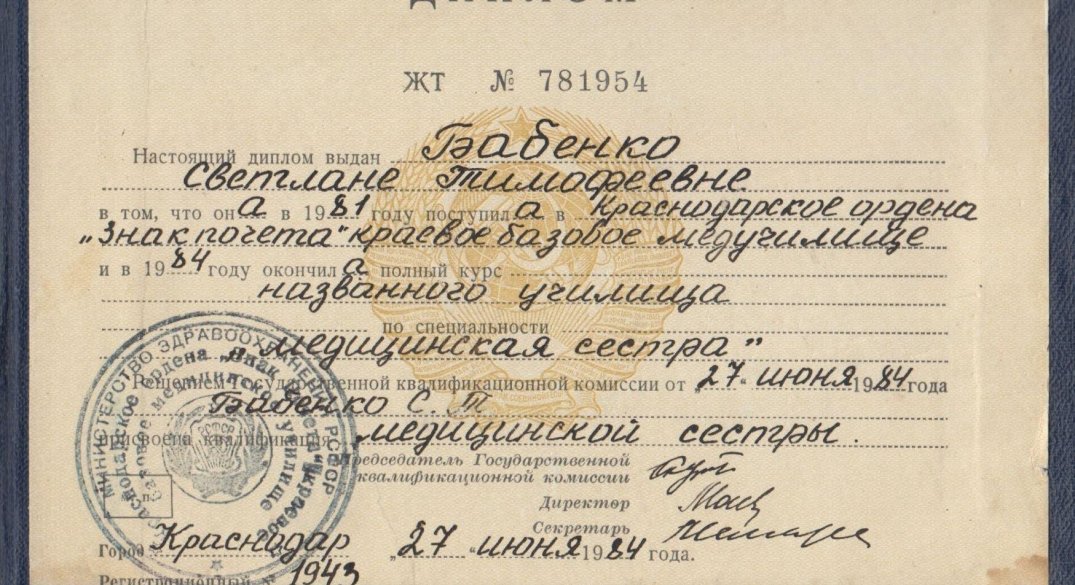 ДИПЛОМ
ЖТ № 781954
Настоящий диплом выдан Бабенко
Светлане Тимофеевне
в том, что она в 1981 году поступила в Краснодарское ордена
„Знак почета“ краевое базовое медучилище
и в 1984 году окончила полный курс
названного училища
по специальности
медицинская сестра”
Решением Государственной квалификационной комиссии от „27” июня 1984 года
Бабенко С. Т
присвоена квалификация медицинской сестры.
Председатель Государственной
квалификационной комиссии
Директор
Секретарь
Город Краснодар „27” июня 1984 года.
Регистрационный № 1943
МИНИСТЕРСТВО ЗДРАВООХРАНЕНИЯ РСФСР